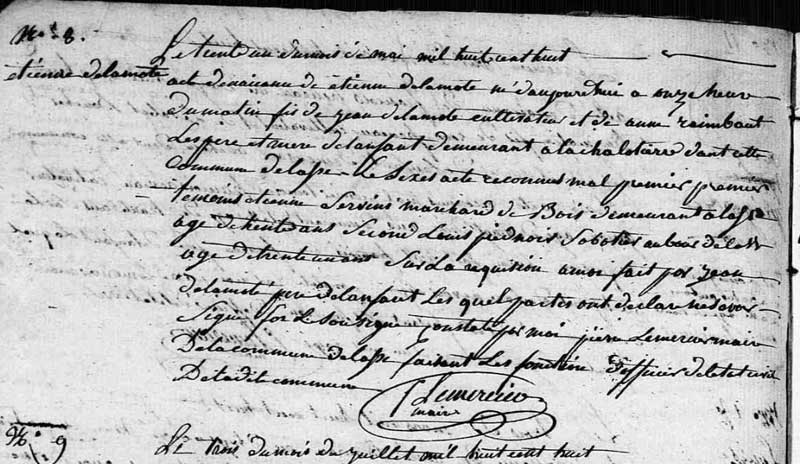 N.° 8.
étienne delamote
Le trente un du mois de mai mil huit cent huit
acte denaisance de étienne delamote né daujourdhui a onze heure
dumatin fis de jean delamote cultivateur et de anne raimbaut
Les pere et mere delanfant demeurant a lachalotiere dant cette
Commune delasse Le Sexes acte reconnus mal premier premier
temoins étienne Servins marchand de Bois demeurant a lasse
age de trente ans Second Louis piednois Sabotier aubois delasse
age de trente un ans Sur La requision a moi fait par jean
delamote pere delanfant Les quel parties ont declare ne savoir
Signé Sor Le Sousigné constaté par moi piere Lemercier maire
Delacommune delasse faisant Les fonction d'officier deletat civil
De ladit commune
Lemercier
maire
N.° 9
Le trois dumois de juillet mil huit cent huit